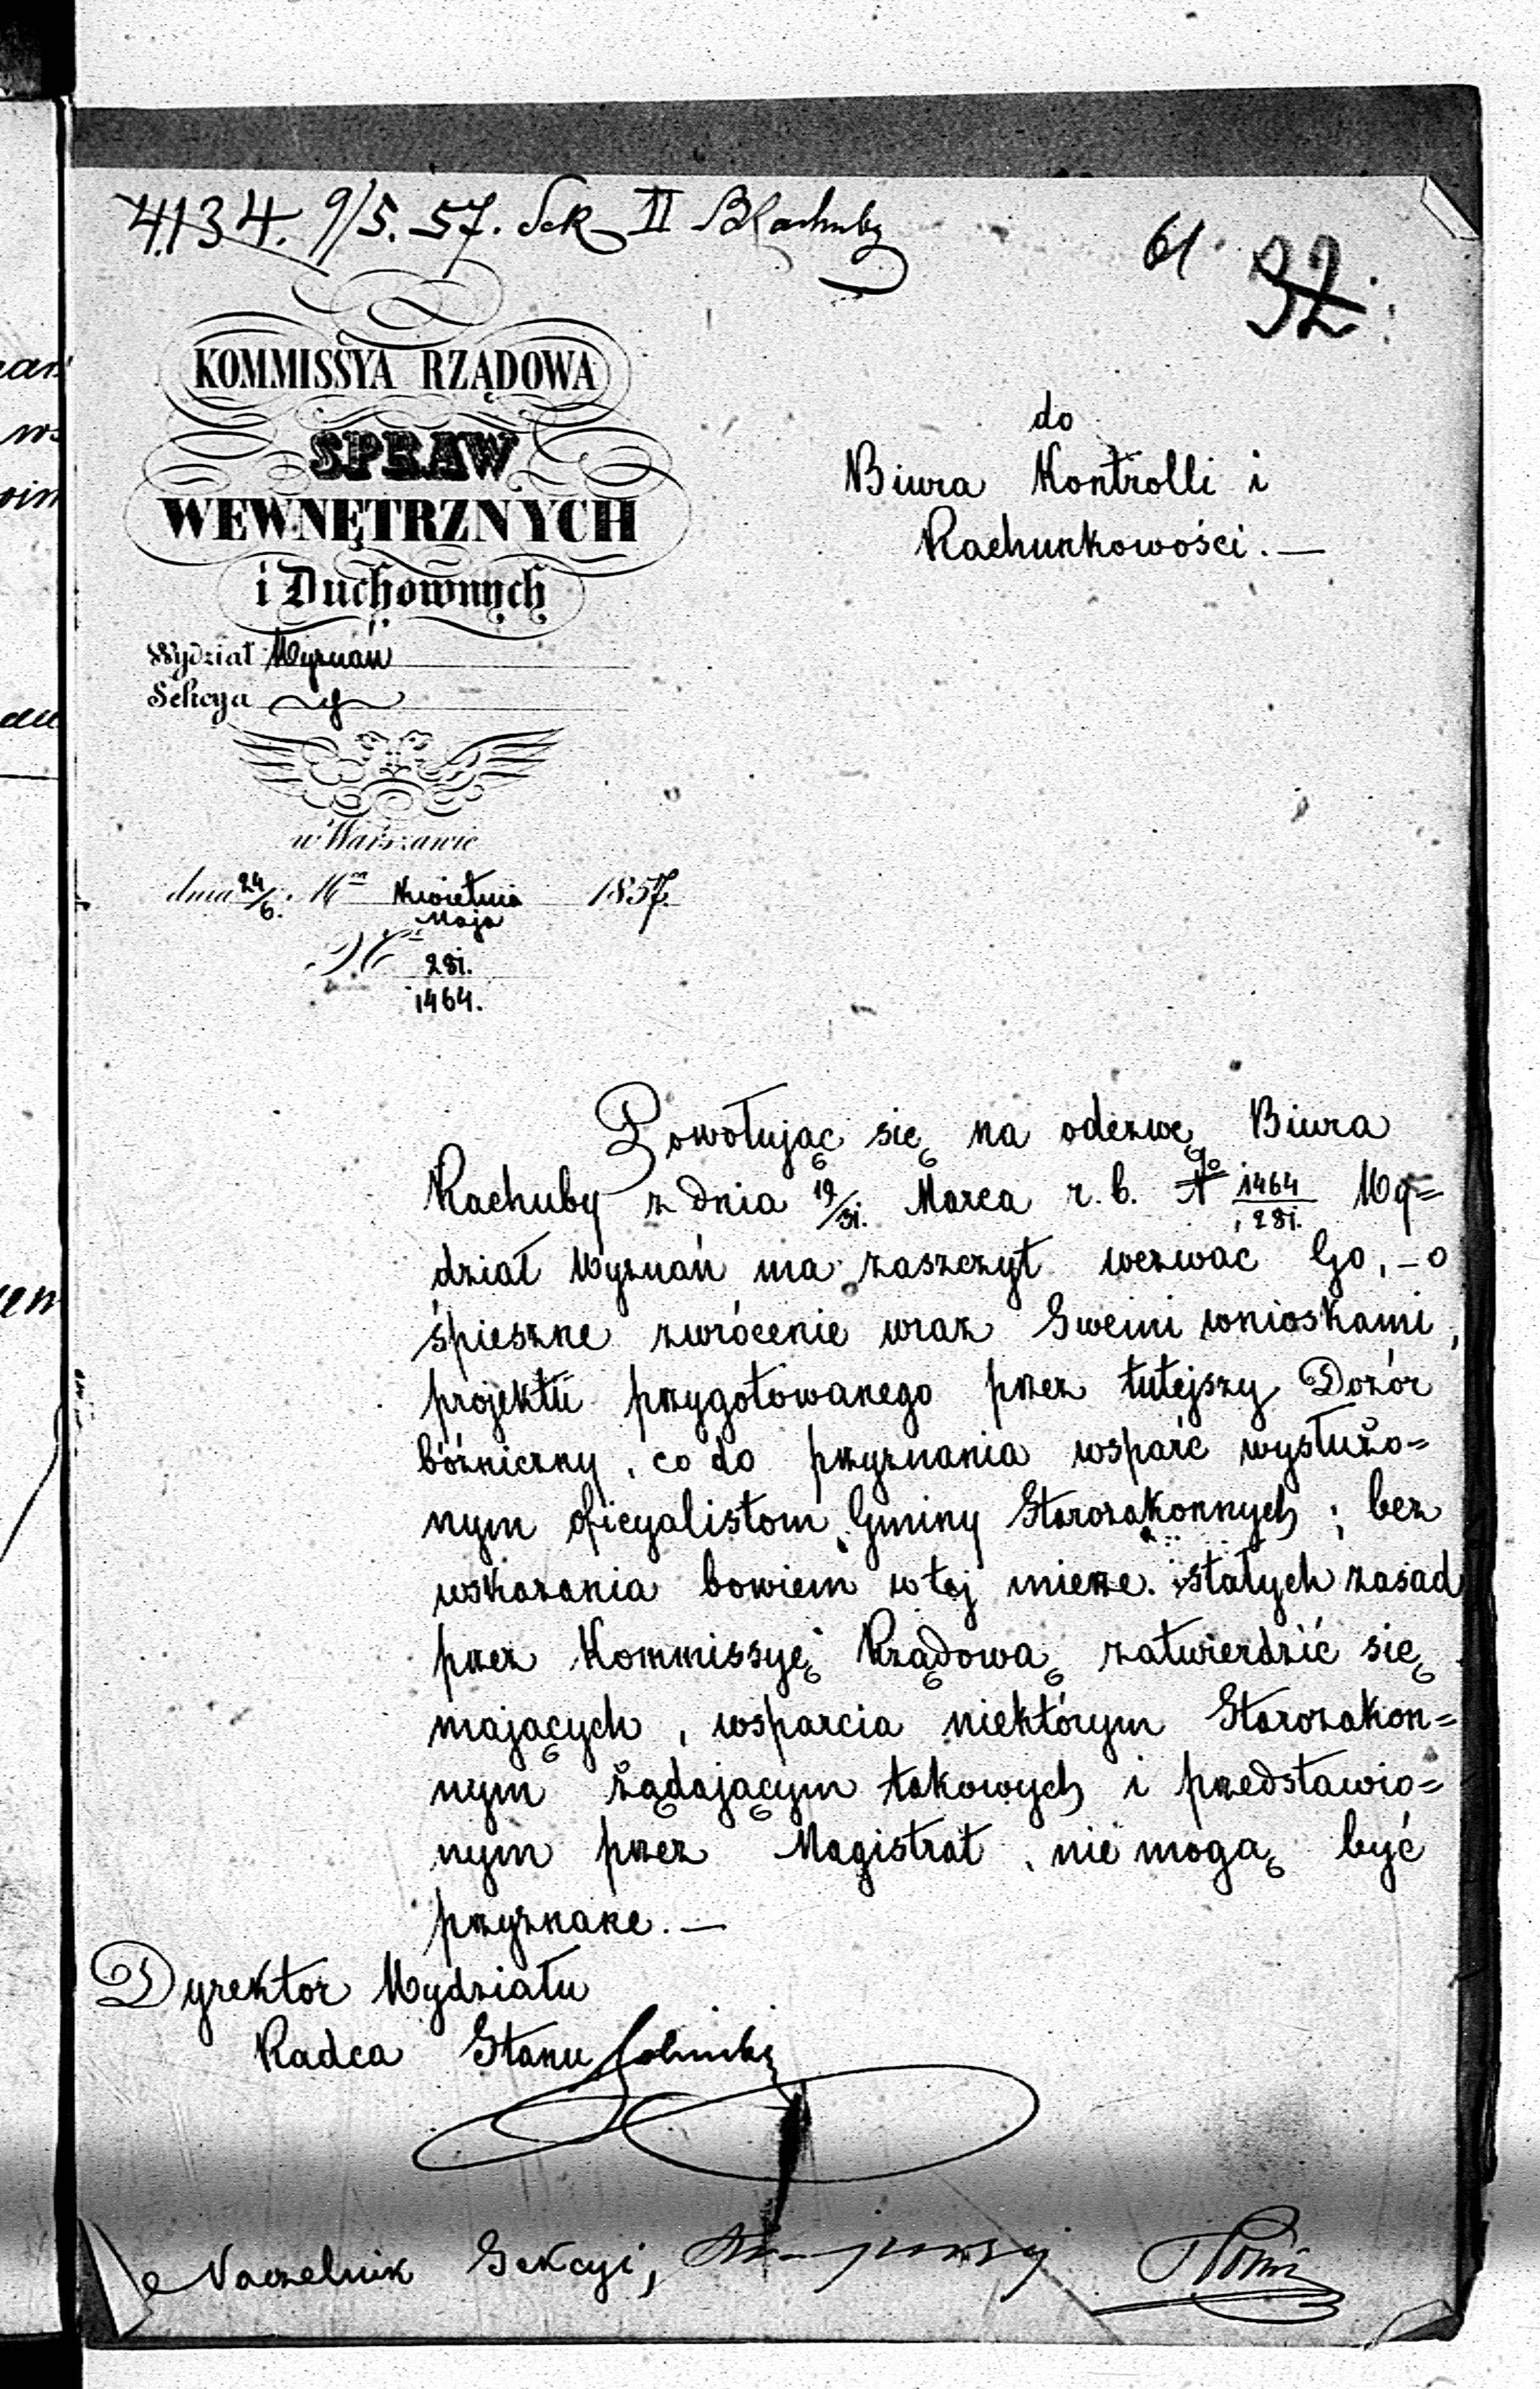 4134. 9/5. 57. Sek II BRachuby
61. 92.
KOMMISSYA RZĄDOWA
SPRAW
WEWNĘTRZNYCH
i Duchownych
Wydział Wyznań
Sekcya
w Warszawie
dnia 24/6. Mca Kwietnia 1857.
Maja
No 281.
1464.
do
Biura Kontrolli i
Rachunkowości. —
Powołując się na odezwę Biura
Rachuby z dnia 19/31. Marca r. b. No 1464/281. Wy=
dział Wyznań ma zaszczyt wezwać Go, – o
śpieszne zwrócenie wraz Swemi wnioskami,
projektu przygotowanego przez tutejszy Dozór
bóżniczny, co do przyznania wsparć wysłużo=
nym oficyalistom Gminy Starozakonnych; bez
wskazania bowiem w tej mierze stałych zasad
przez Kommissyę Rządową zatwierdzić się
mających, wsparcia niektórym Starozakon=
nym żądającym takowych i przedstawio=
nym przez Magistrat, nie mogą być
przyznane. —
Dyrektor Wydziału
Radca Stanu
Naczelnik Sekcyi,